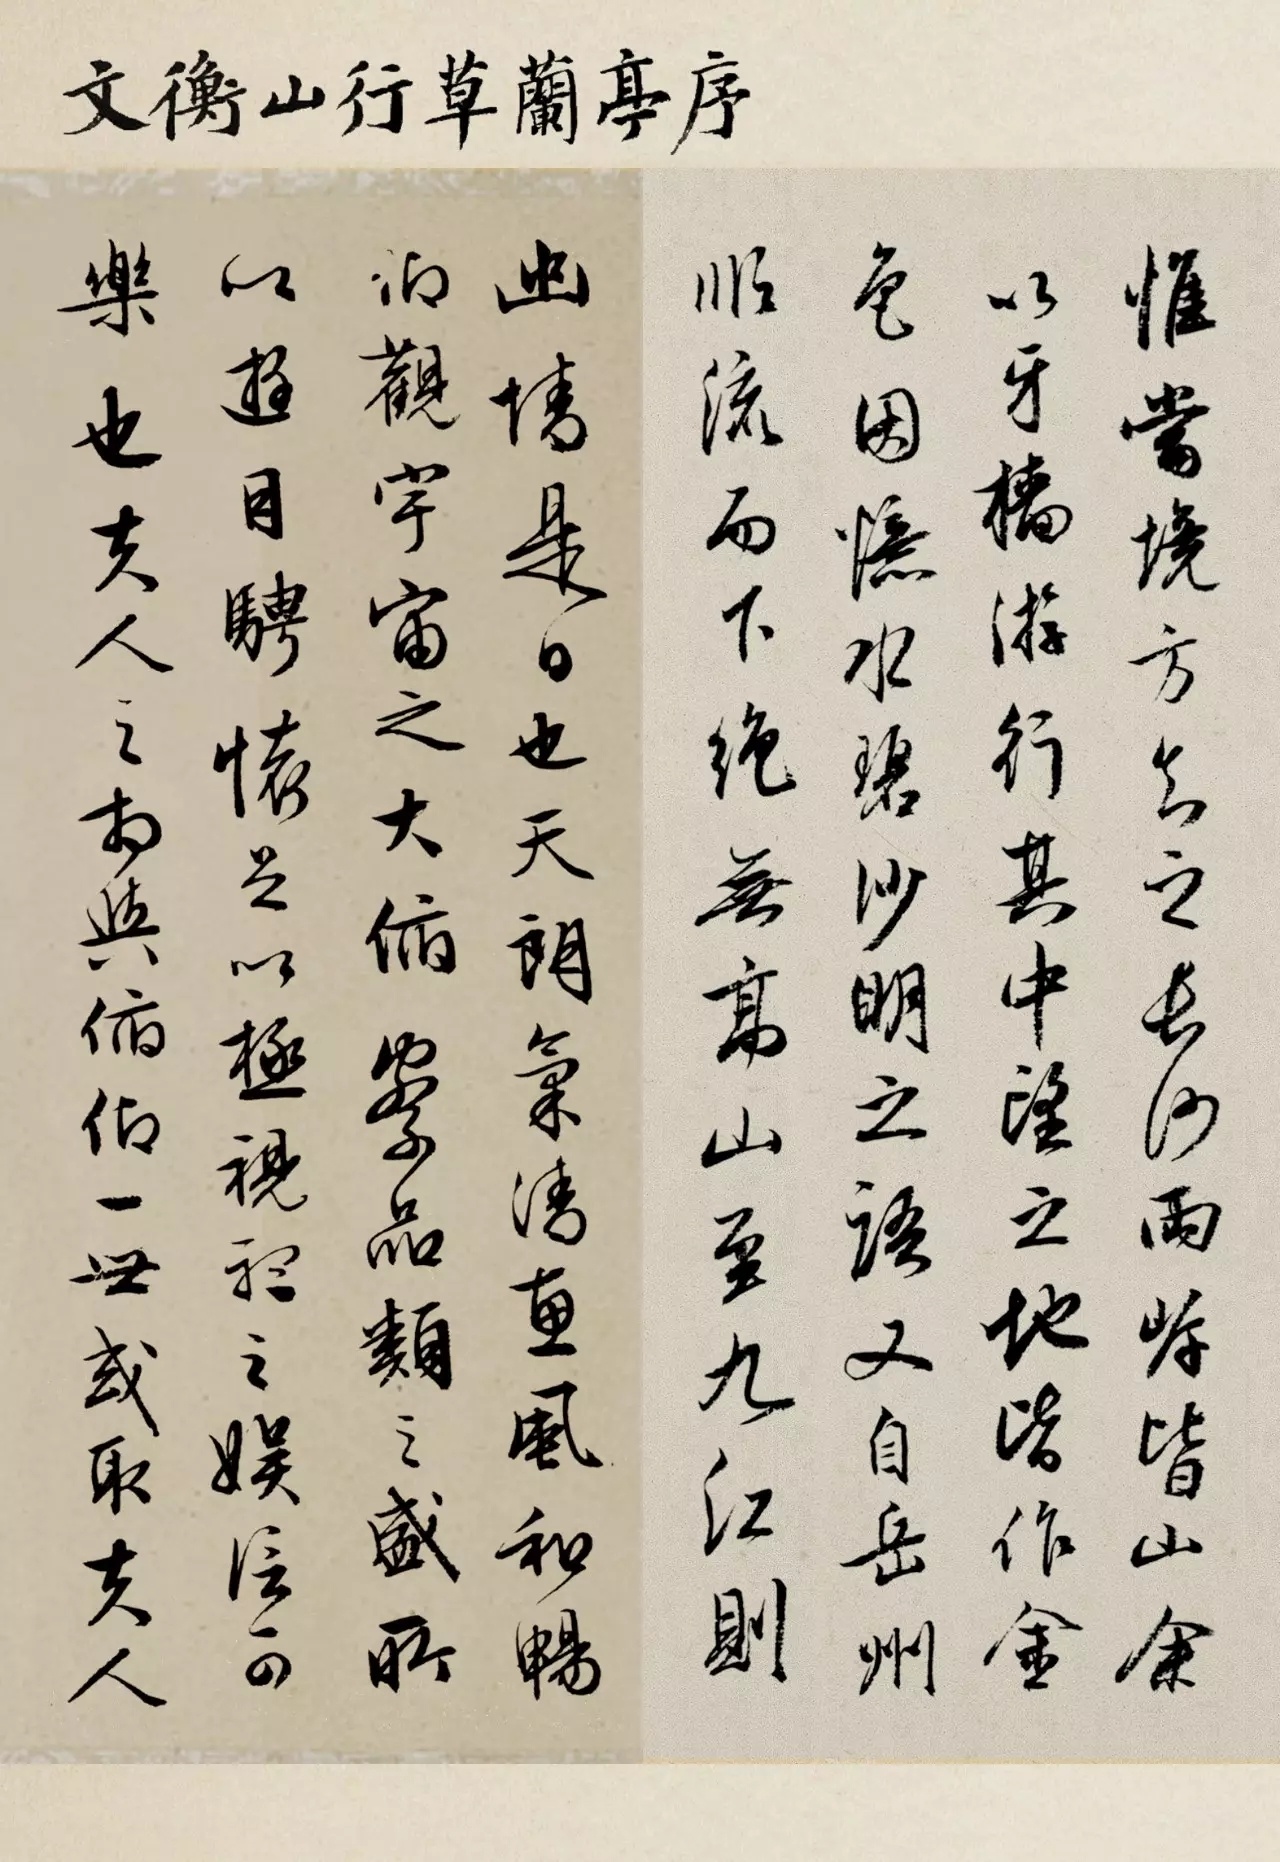 文衡山行草蘭亭序
惟當境方知之長沙兩岸皆山余
以牙檣游行其中望之地皆作金
色因憶水碧沙明之語又自岳州
順流而下絕無高山至九江則
幽情是日也天朗氣清惠風和暢
仰觀宇宙之大俯察品類之盛所
以遊目騁懷足以極視聽之娛信可
樂也夫人之相與俯仰一世或取夫人